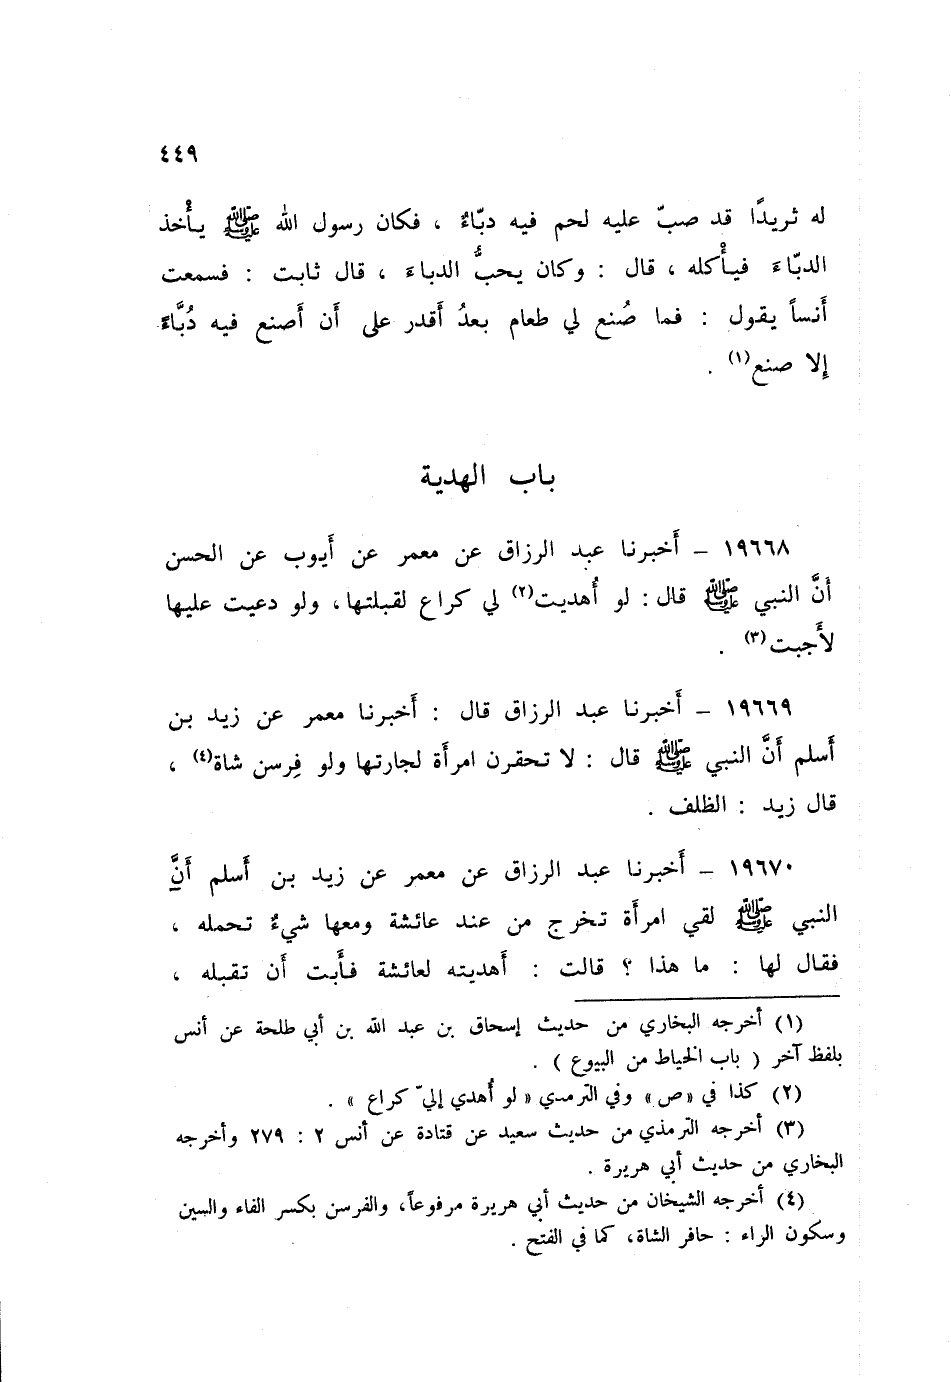 ٤٤٩
له ثريدًا قد صبّ عليه لحم فيه دبّاءٌ ، فكان رسول الله ﷺ يأْخذ
الدبّاءَ فيأْكله ، قال : وكان يحبُّ الدباءَ ، قال ثابت : فسمعت
أَنساً يقول : فما صُنع لي طعام بعدُ أَقدر على أَن أَصنع فيه دُبَّاءً
إِلا صنع(١) .
باب الهدية
١٩٦٦٨ – أَخبرنا عبد الرزاق عن معمر عن أَيوب عن الحسن
أَنَّ النبي ﷺ قال : لو أُهديت(٢) لي كراع لقبلتها ، ولو دعيت عليها
لأَجبت(٣) .
١٩٦٦٩ – أَخبرنا عبد الرزاق قال : أَخبرنا معمر عن زيد بن
أَسلم أَنَّ النبي ﷺ قال : لا تحقرن امرأَة لجارتها ولو فِرسن شاة(٤) ،
قال زيد : الظلف .
١٩٦٧٠ – أَخبرنا عبد الرزاق عن معمر عن زيد بن أَسلم أَنَّ
النبي ﷺ لقي امرأَة تخرج من عند عائشة ومعها شيءٌ تحمله ،
فقال لها : ما هذا ؟ قالت : أَهديته لعائشة فأَبت أَن تقبله ،
(١) أخرجه البخاري من حديث إسحاق بن عبد الله بن أبي طلحة عن أنس
بلفظ آخر ( باب الخياط من البيوع ) .
(٢) كذا في «ص» وفي الترمذي « لو أُهدي إليّ كراع » .
(٣) أخرجه الترمذي من حديث سعيد عن قتادة عن أنس ٢ : ٢٧٩ وأخرجه
البخاري من حديث أبي هريرة .
(٤) أخرجه الشيخان من حديث أبي هريرة مرفوعاً ، والفرسن بكسر الفاء والسين
وسكون الراء : حافر الشاة ، كما في الفتح .